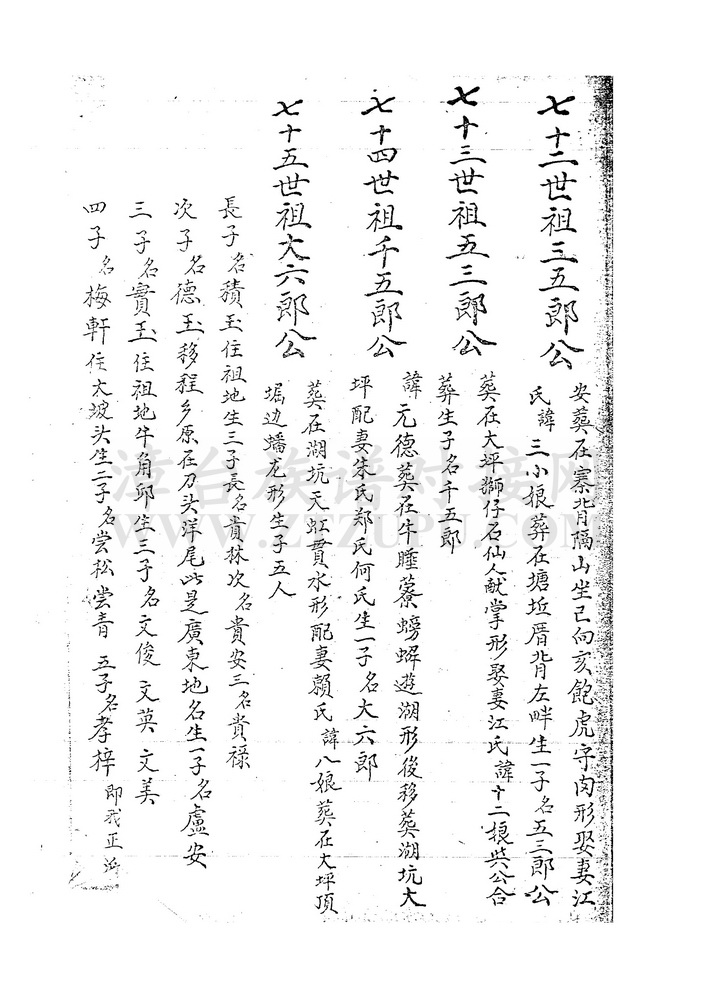 七十二世祖三五郎公
安葬在寨背隔山坐已向亥飽虎守肉形娶妻江
氏諱三小娘葬在塘坵厝背左畔生一子名五三郎公
七十三世祖五三郎公
葬在大坪獅仔石仙人献掌形娶妻江氏諱十二娘與公合
葬生子名千五郎
七十四世祖千五郎公
諱元德葬在牛睡藔螃蠏遊湖形後移葬湖坑大
坪配妻朱氏郑氏何氏生一子名大六郎
七十五世祖大六郎公
葬在湖坑天虹貫水形配妻賴氏諱八娘葬在大坪頂
堀边蟠龙形生子五人
長子名積玉住祖地生三子長名貴秝次名貴安三名貴禄
次子名德玉移程乡原在刀头洋尾此是廣東地名生一子名盧安
三子名實玉住祖地牛角邱生三子名文俊 文英 文美
四子名梅軒住大坡头生二子名崇松崇青 五子名孝梓 即我正
漳台族谱对接网
WWW.ZTZUPU.COM